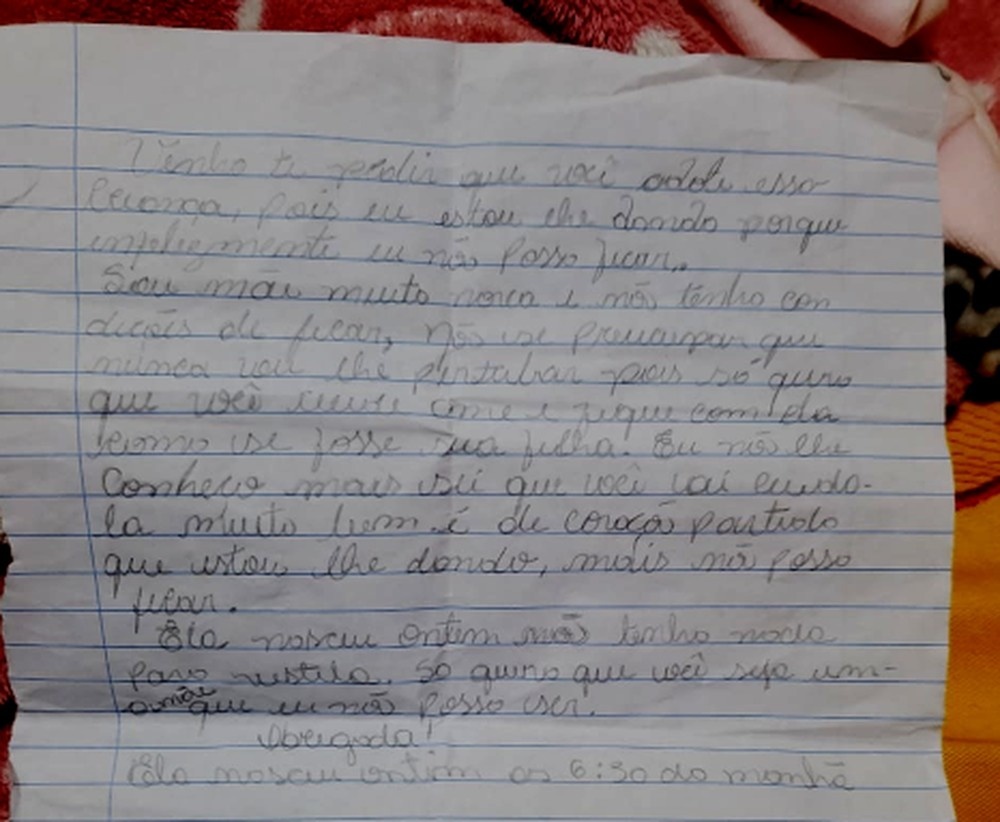 Venho te pedir que você adote esso
criança, pois eu estou lhe dando porque
infelizmente eu não posso ficar..
Sou mãe muito nova e não tenho con
dições de ficar, não se preocupar que
nunca vou lhe pertubar pois só quero
que você cuide ame e fique com ela
como se fosse sua filha. Eu não lhe
conheço mais sei que você vai cuida-
la muito bem é de coração partido
que estou lhe dando, mais não posso
ficar.
Ela nasceu ontem não tenho nada
para vestila. Só quero que você seja um-
a mãe que eu não posso ser.
Obrigada!
Ela nasceu ontem as 6:30 da manhã